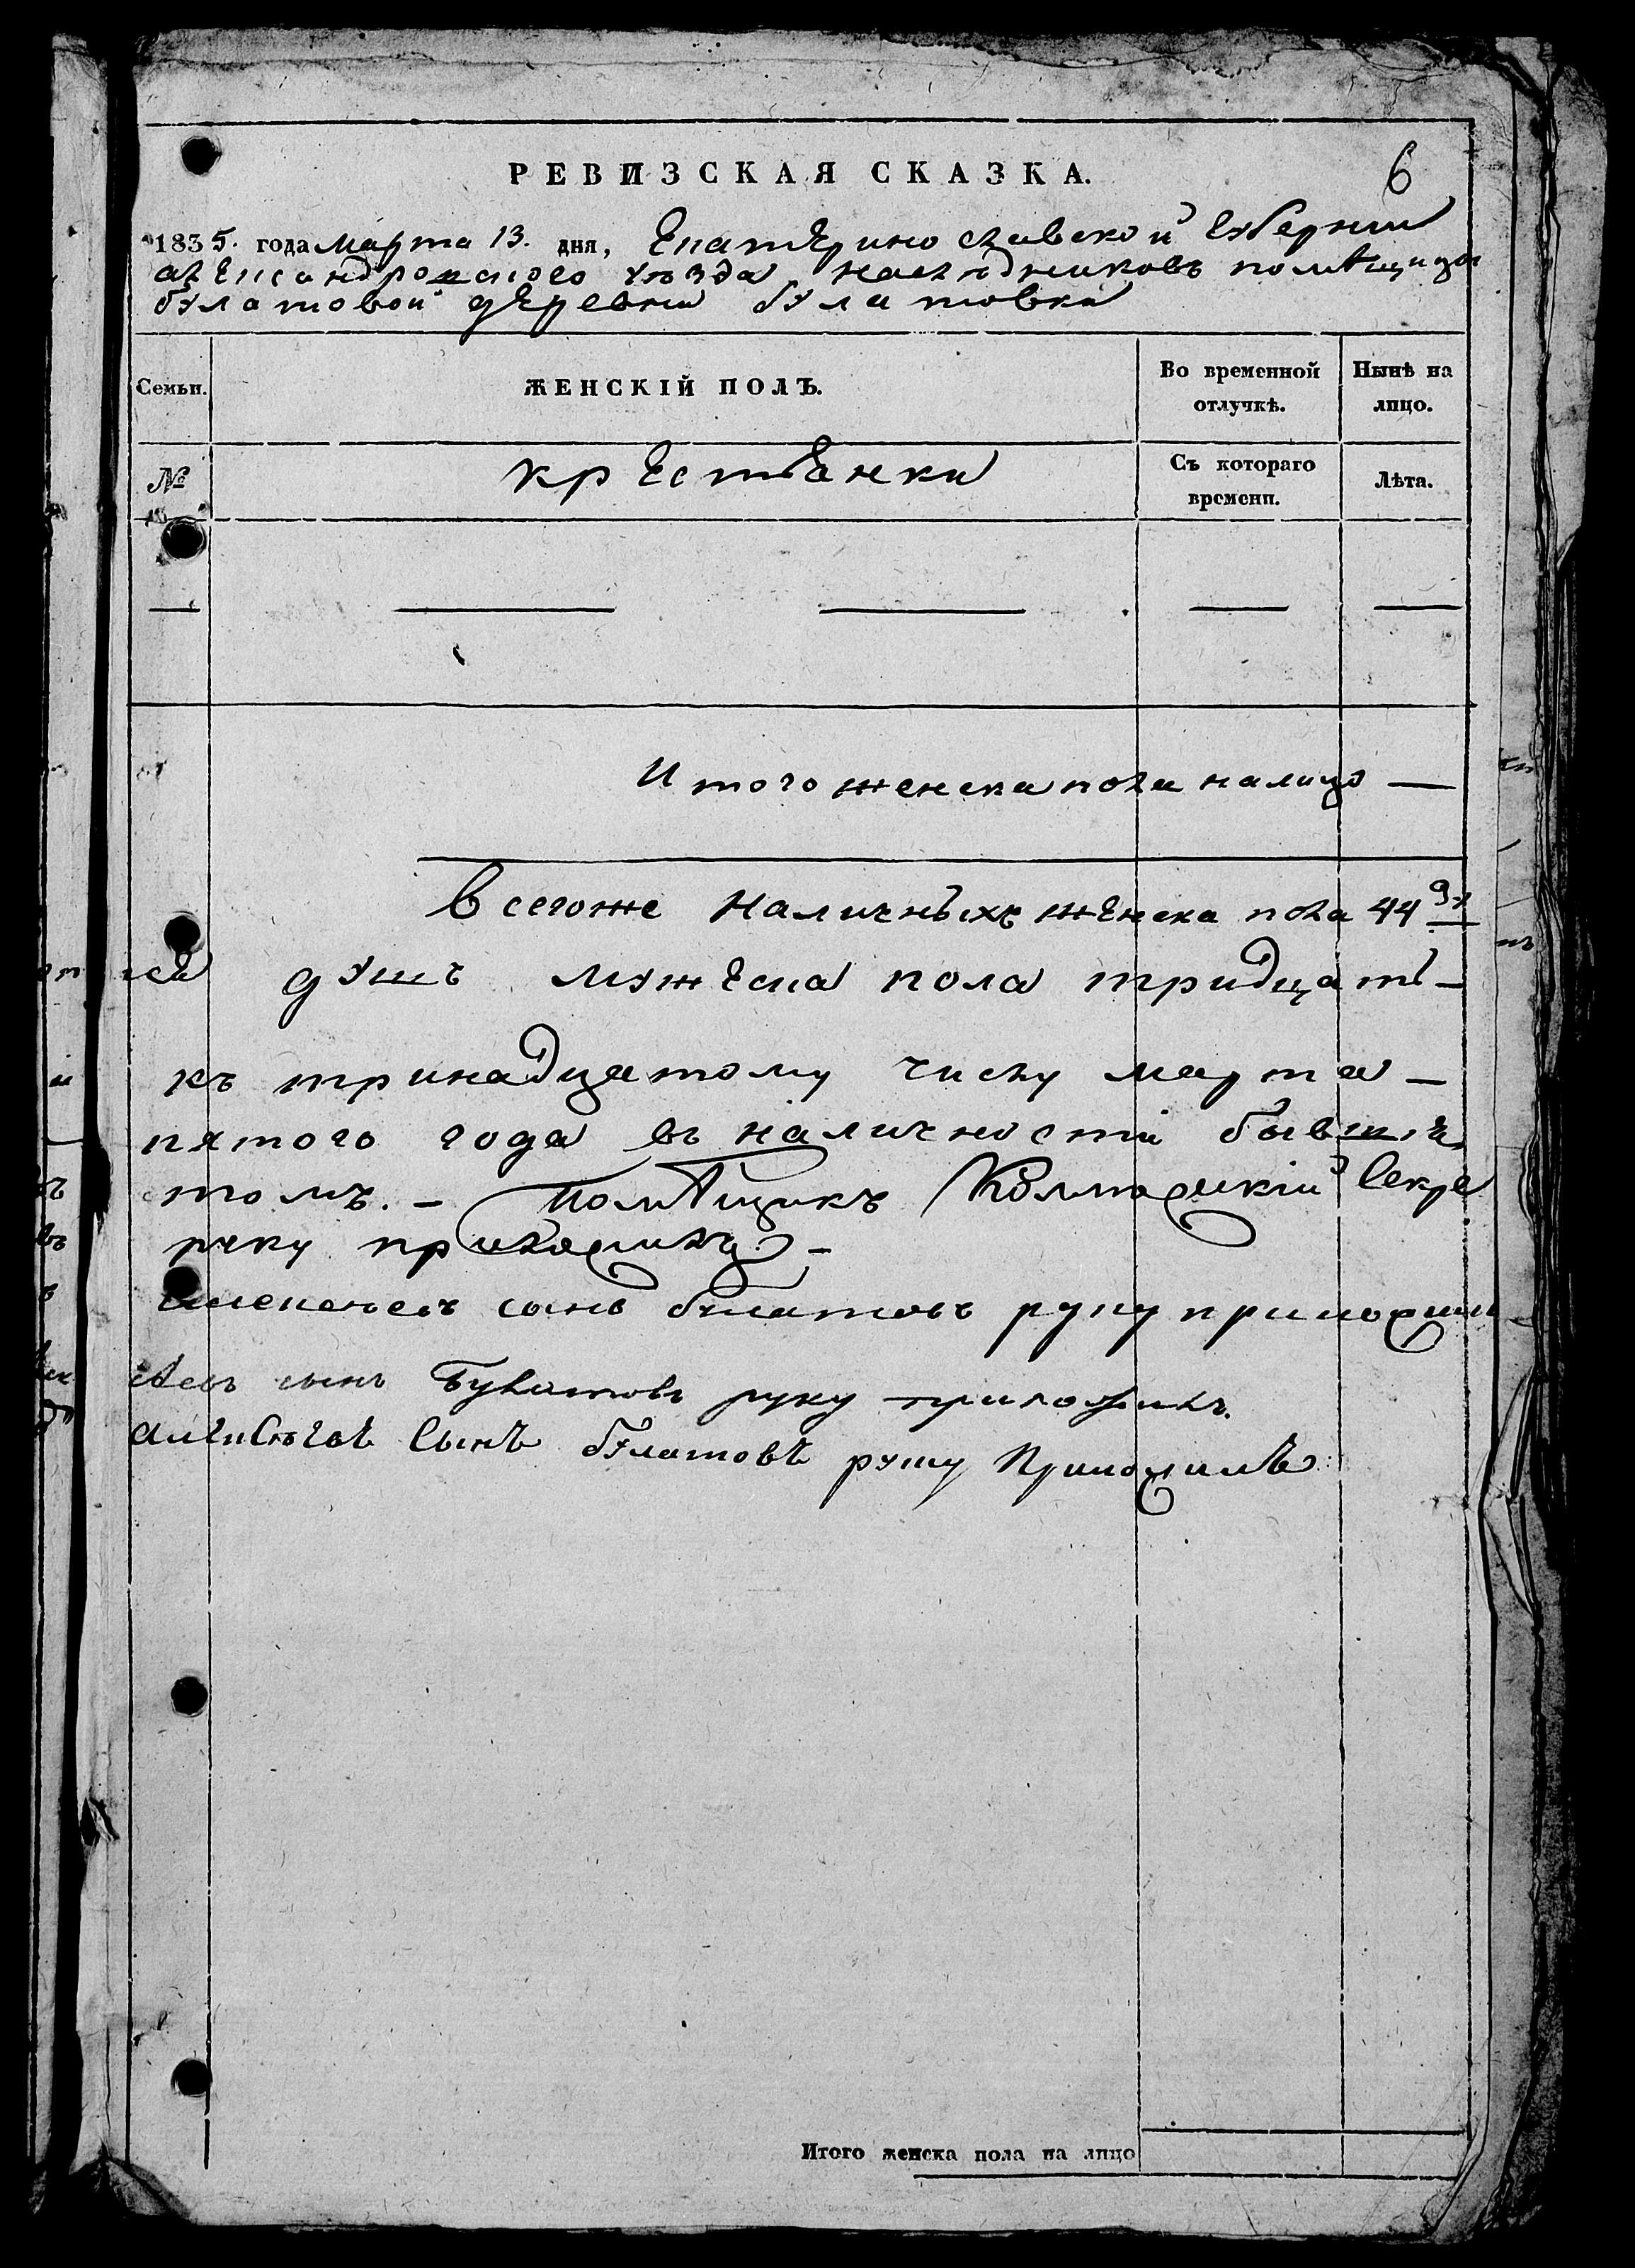 РЕВИЗСКАЯ СКАЗКА.
6
1835. года марта 13. дня, Екатеринославской губернии
александровского уѣзда наследниковъ помѣщицы
булатовой деревни булатовки
Семьи.
ЖЕНСКІЙ ПОЛЪ.
Во временной отлучкѣ.
Нынѣ на лицо.
№
крестьянки
Съ котораго времени.
Лѣта.
Итого женска пола налицо —
Всегоже Наличныхъ женска пола 44
душъ мужеска пола тридцать —
къ тринадцатому числу марта —
пятого года въ наличности бывшихъ
томъ. — помѣщикъ Секре
руку приложилъ —
сынъ булатовъ руку приложилъ
сынъ Булатовъ руку приложилъ.
Сынъ булатовъ руку Приложилъ
Итого женска пола на лицо